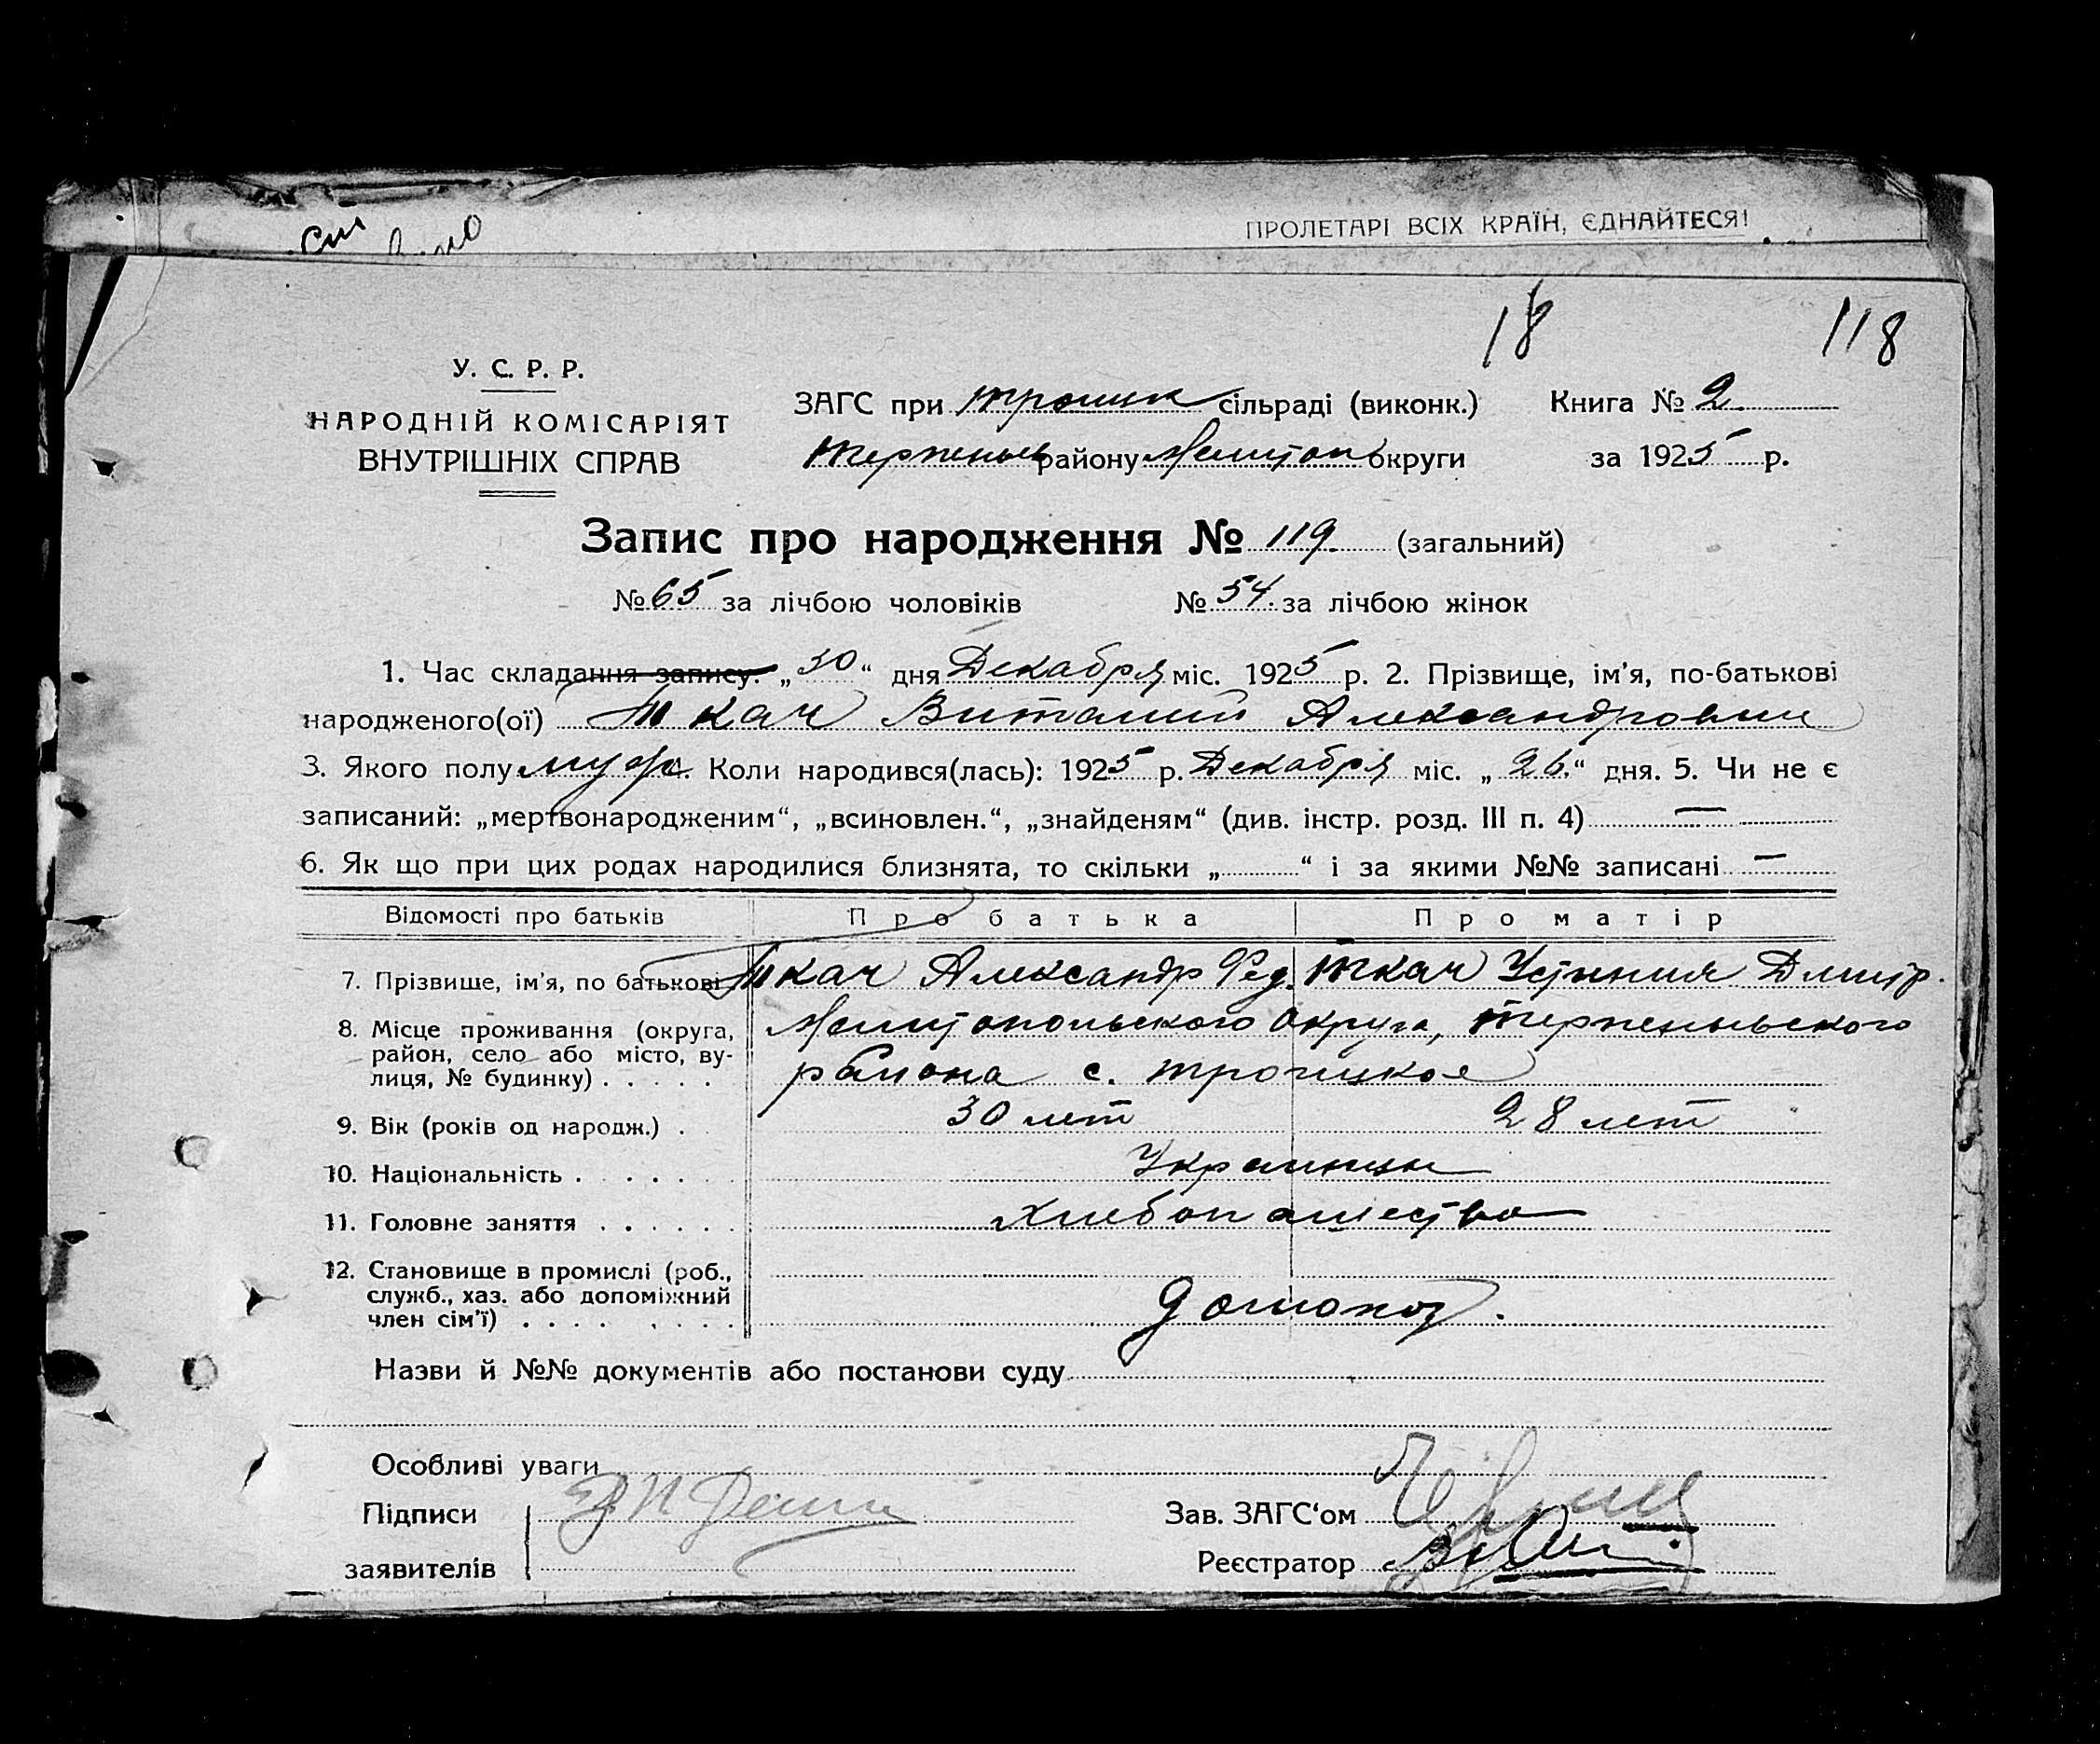 ПРОЛЕТАРІ ВСІХ КРАЇН, ЄДНАЙТЕСЯ!
18 118
У. С. Р. Р.
НАРОДНІЙ КОМІСАРІЯТ
ВНУТРІШНІХ СПРАВ
ЗАГС при Троицк сільраді (виконк.) Книга № 2
району Мелитоп округи за 1925 р.
Запис про народження № 119. (загальний)
№ 65 за лічбою чоловіків № 54. за лічбою жінок
1. Час складання запису. „30“ дня Декабря міс. 1925 р. 2. Прізвище, ім'я, по-батькові
народженого(ої) Ткач Виталий Александрович
3. Якого полу муж. Коли народився(лась): 1925 р. Декабря міс. „26.“ дня. 5. Чи не є
записаний: „мертвонародженим“, „всиновлен.“, „знайденям“ (див. інстр. розд. III п. 4) —
6. Як що при цих родах народилися близнята, то скільки „ “ і за якими №№ записані —
Відомості про батьків Про батька Про матір
7. Прізвище, ім'я, по батькові Ткач Александр Фед. Ткач Устиния Дмитр.
8. Місце проживання (округа, район, село або місто, вулиця, № будинку) . . . . . Мелитопольского Округа,
района с. Троицкое
9. Вік (років од народж.) . 30 лет 28 лет
10. Національність . . . . . . Украинцы
11. Головне заняття . . . . . . Хлебопашество
12. Становище в промислі (роб.,
служб., хаз. або допоміжний
член сім'ї) . . . .
Назви й №№ документів або постанови суду
Особливі уваги
Підписи
заявителів
Зав. ЗАГС'ом
Реєстратор